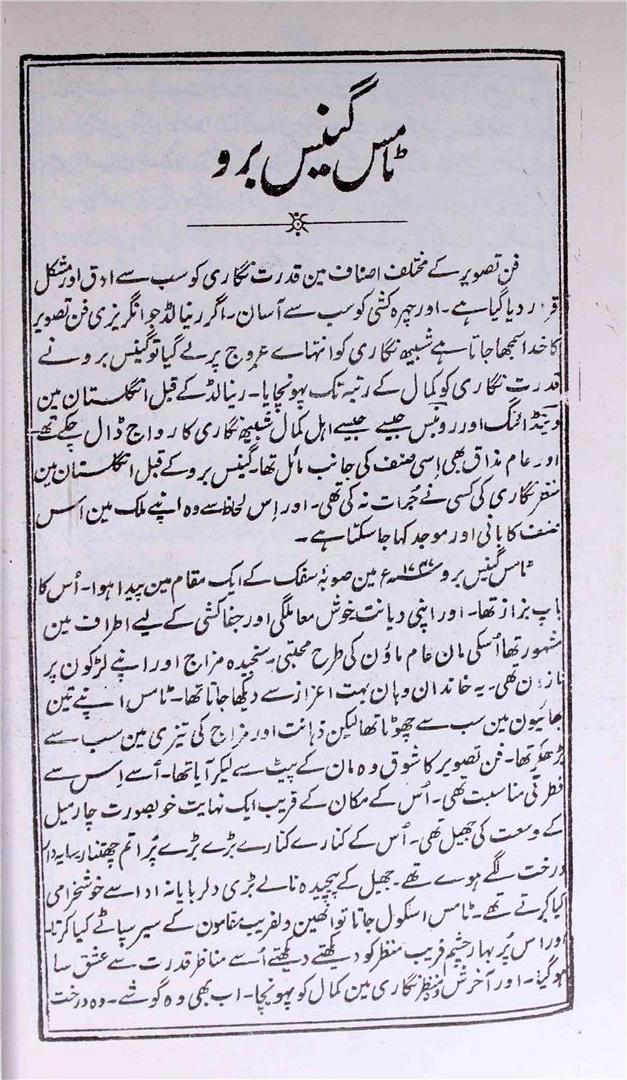 ٹامس گینس برو
فن تصویر کے مختلف اصناف مین قدرت نگاری کو سب سے ادق اور مشکل
قرار دیا گیا ہے۔ اور چہرہ کشی کو سب سے آسان۔ اگر رینالڈ جو انگریزی فن تصویر
کا خدا سمجھا جاتا ہے شبیھ نگاری کو انتہاے عروج پر لے گیا تو گینس برو نے
قدرت نگاری کو کمال کے رتبہ تک پہونچایا۔ رینالڈ کے قبل انگلستان مین
وینڈائنگ اور روبنس جیسے جیسے اہل کمال شبیھ نگاری کا رواج ڈال چکے تھے
اور عام مذاق بھی اِسی صنف کی جانب مائل تھا۔ گینس برو کے قبل انگلستان مین
منظر نگاری کی کسی نے جُرات نہ کی تھی۔ اور اِس لحاظ سے وہ اپنے ملک مین اس
صنف کا بانی اور موجد کہا جا سکتا ہے۔
ٹامس گینس برو ۱۷۲۷ء مین صوبۂ سفک کے ایک مقام مین پیدا ہوا۔ اُس کا
باپ بزاز تھا۔ اور اپنی دیانت خوش معاملگی اور جفاکشی کے لیے اطراف مین
مشہور تھا اُسکی مان عام ماؤن کی طرح محبتی۔ سنجیدہ مزاج اور اپنے لڑکون پر
نازان تھی۔ یہ خاندان وہان بہت اعزاز سے دیکھا جاتا تھا۔ ٹامس اپنے تین
بھائیون مین سب سے چھوٹا تھا لیکن ذہانت اور مزاج کی تیزی مین سب سے
بڑھکر تھا۔ فن تصویر کا شوق وہ مان کے پیٹ سے لیکر آیا تھا۔ اُسے اِس سے
فطرتی مناسبت تھی۔ اُس کے مکان کے قریب ایک نہایت خوبصورت چار میل
کے وسعت کی جھیل تھی۔ اُس کے کنارے کنارے بڑے بڑے پُراتم چھتنار سایہ دار
درخت لگے ہوے تھے۔ جھیل کے پیچیدہ نالے بڑی دلربایانہ ادا سے خوشخرامی
کیا کرتے تھے۔ ٹامس اسکول جاتا تو انھین دلفریب مقامون کے سیر سپاٹے کیا کرتا۔
اور اس پُر بہار چشم فریب منظر کو دیکھتے دیکھتے اُسے مناظر قدرت سے عشق سا
ہو گیا۔ اور آخرش وہ منظر نگاری مین کمال کو پہونچا۔ اب بھی وہ گوشے۔ وہ درخت